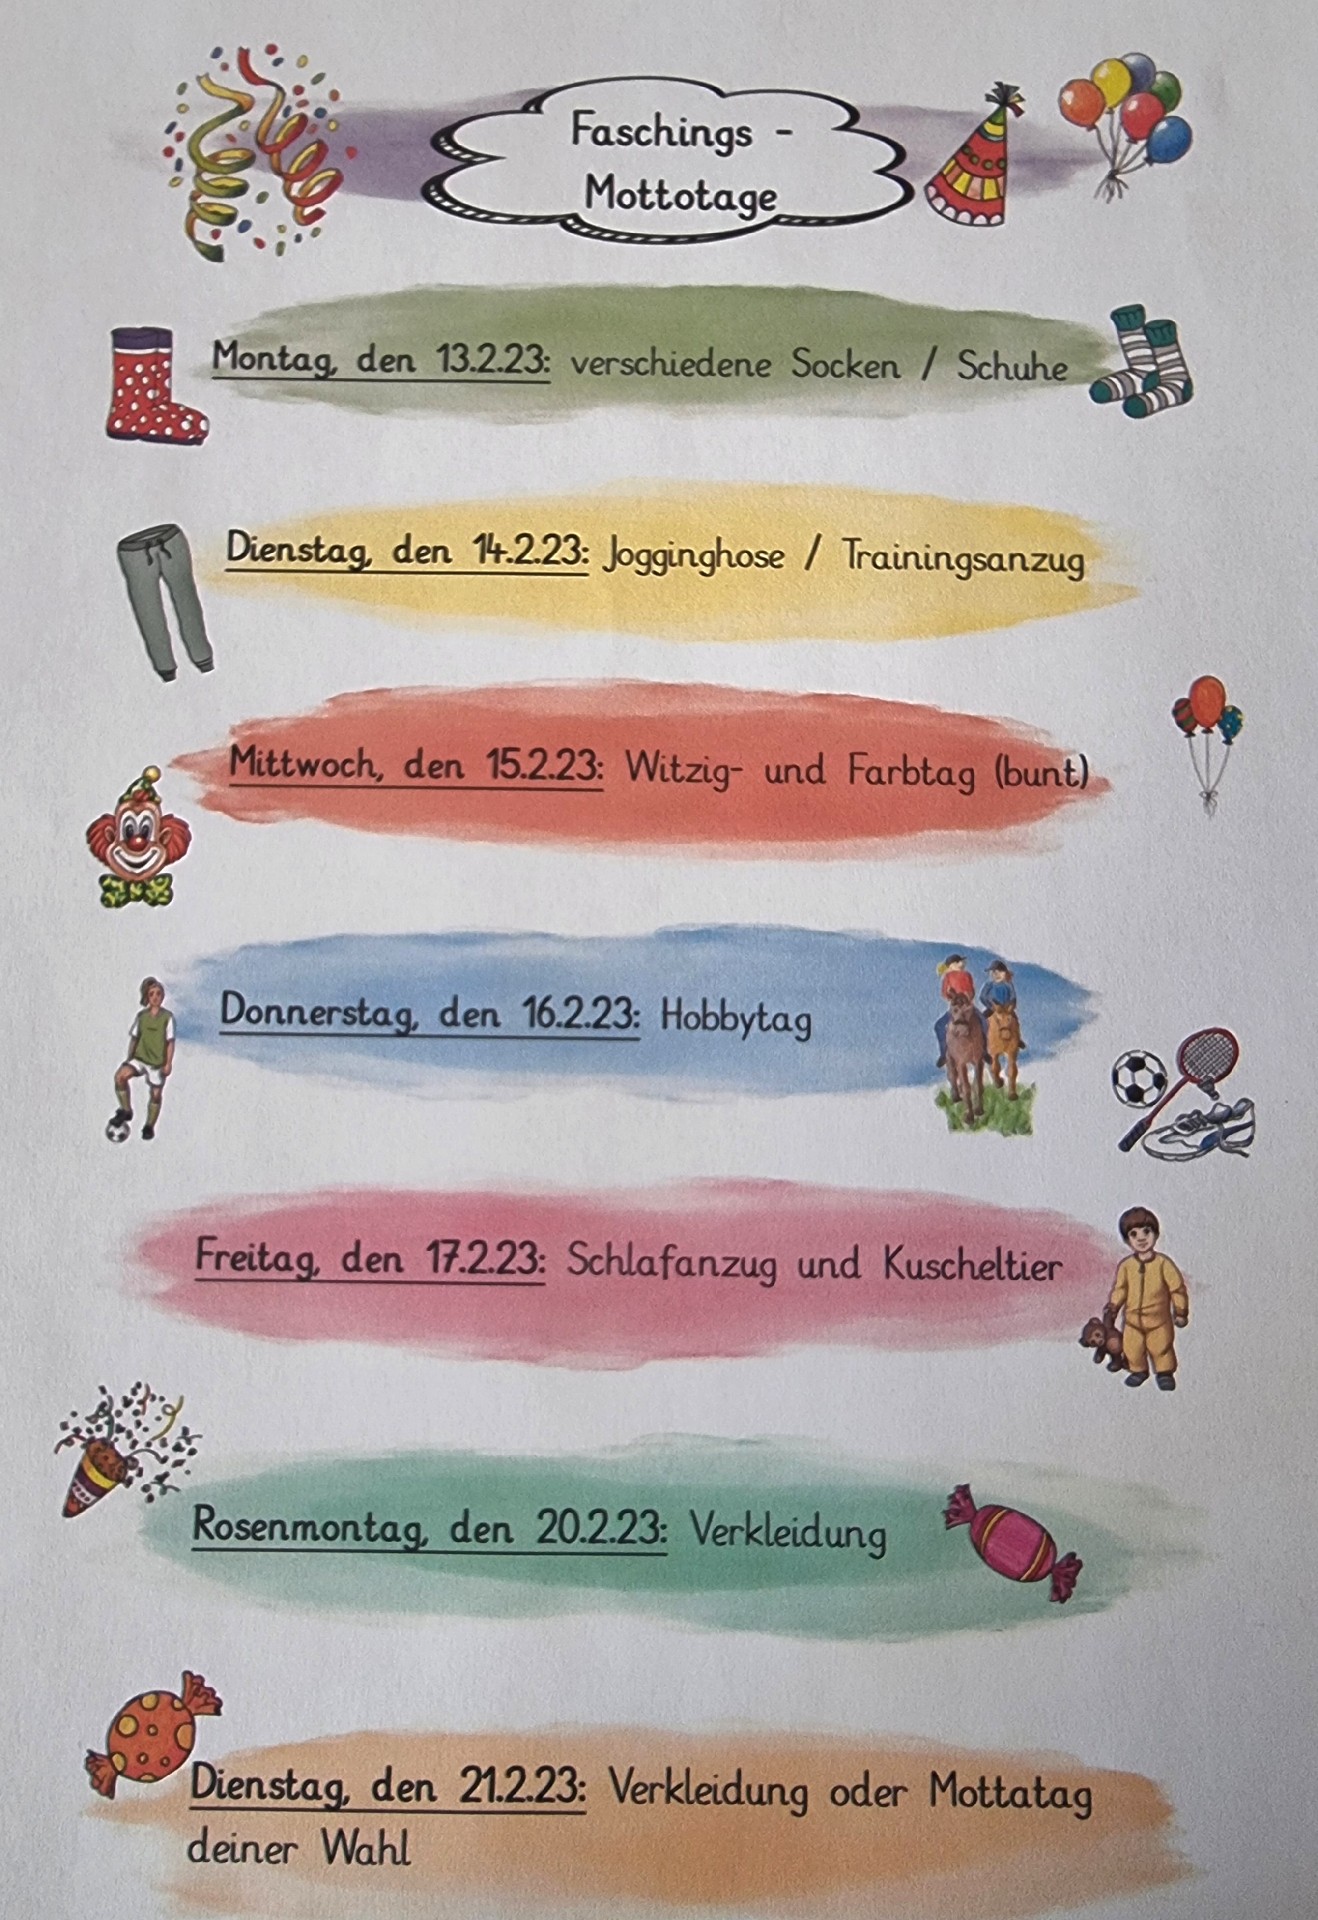 Faschings -
Mottotage
Montag, den 13.2.23: verschiedene Socken / Schuhe
Dienstag, den 14.2.23: Jogginghose / Trainingsanzug
Mittwoch, den 15.2.23: Witzig- und Farbtag (bunt)
Donnerstag, den 16.2.23: Hobbytag
Freitag, den 17.2.23: Schlafanzug und Kuscheltier
Rosenmontag, den 20.2.23: Verkleidung
Dienstag, den 21.2.23: Verkleidung oder Mottatag
deiner Wahl